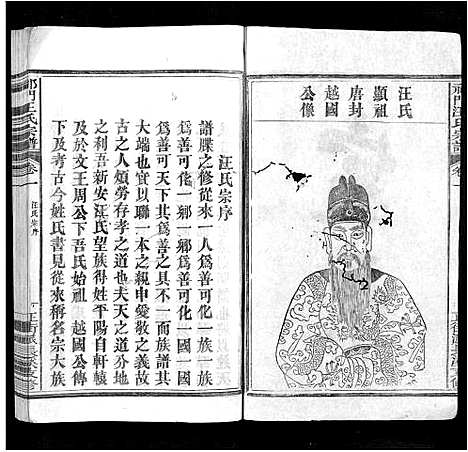 祁門汪氏宗譜
卷一
汪氏
顯祖
唐封
越國
公像
汪氏宗序
譜牒之修從來一人爲善可化一族一族
爲善可化一鄉一鄉爲善可化一國一國
爲善可天下其爲善之具不一而族譜其
大端也宜以聯一本之親申愛敬之義故
古之人煩勞存孝之道也夫天之道分地
之利吾新安汪氏望族得姓平陽自軒轅
及於文王周公下吾氏始祖 越國公傳
下及考古今姓氏書見從來稱名宗大族
祁門汪氏宗譜
卷一
汪氏宗序
一